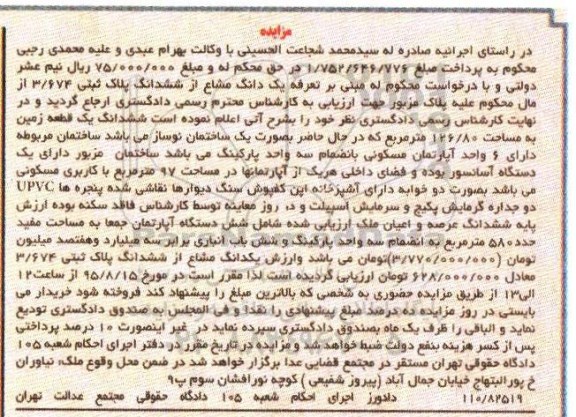 مزایده
در راستای اجرائیه صادره له سیدمحمد شجاعت الحسینی با وکالت بهرام عبدی و علیه محمدی رجبی
محکوم به پرداخت مبلغ ۱/۷۵۲/۶۴۶/۷۷۶ در حق محکوم له و مبلغ ۷۵/۰۰۰/۰۰۰ ریال نیم عشر
دولتی و با درخواست محکوم له مبنی بر تعرفه یک دانگ مشاع از ششدانگ پلاک ثبتی ۳/۶۷۴ از
مال محکوم علیه پلاک مزبور جهت ارزیابی به کارشناس محترم رسمی دادگستری ارجاع گردید و در
نهایت کارشناس رسمی دادگستری نظر خود را بشرح آتی اعلام نموده است ششدانگ یک قطعه زمین
به مساحت ۲۴۶/۸۰ مترمربع که در حال حاضر بصورت یک ساختمان نوساز می باشد ساختمان مربوطه
دارای ۶ واحد آپارتمان مسکونی بانضمام سه واحد پارکینگ می باشد ساختمان مزبور دارای یک
دستگاه آسانسور بوده و فضای داخلی هریک از آپارتمانها در مساحت ۹۷ مترمربع با کاربری مسکونی
می باشد بصورت دو خوابه دارای آشپزخانه اپن کفپوش سنگ دیوارها نقاشی شده پنجره ها UPVC
دو جداره گرمایش پکیج و سرمایش اسپیلت و در روز معاینه توسط کارشناس فاقد سکنه بوده ارزش
پایه ششدانگ عرصه و اعیان ملک ارزیابی شده شامل شش دستگاه آپارتمان جمعا به مساحت مفید
حدد۵۸۰ مترمربع به انضمام سه واحد پارکینگ و شش باب انباری برابر سه میلیارد وهفتصد میلیون
تومان (۳/۷۷۰/۰۰۰/۰۰۰)تومان می باشد وارزش یکدانگ مشاع از ششدانگ پلاک ثبتی ۳/۶۷۴
معادل ۶۲۸/۰۰۰/۰۰۰ تومان ارزیابی گردیده است لذا مقرر است در مورخ ۹۵/۸/۱۵ از ساعت۱۲
الی۱۳ از طریق مزایده حضوری به شخصی که بالاترین مبلغ را پیشنهاد کند فروخته شود خریدار می
بایستی در روز مزایده ده درصد مبلغ پیشنهادی را نقدا و فی المجلس به صندوق دادگستری تودیع
نماید و الباقی را ظرف یک ماه بصندوق دادگستری سپرده نماید در غیر اینصورت ۱۰ درصد پرداختی
پس از کسر هزینه بنفع دولت ضبط خواهد شد و مزایده در تاریخ مقرر در دفتر اجرای احکام شعبه ۱۰۵
دادگاه حقوقی تهران مستقر در مجتمع قضایی عدا برگزار خواهد شد در ضمن محل وقوع ملک: نیاوران
خ پورابتهاج خیابان جمال آباد (پیروز شفیعی) کوچه نورافشان سوم پ۹
۱۱۰/۸۲۵۱۹ دادورز اجرای احکام شعبه ۱۰۵ دادگاه حقوقی مجتمع عدالت تهران